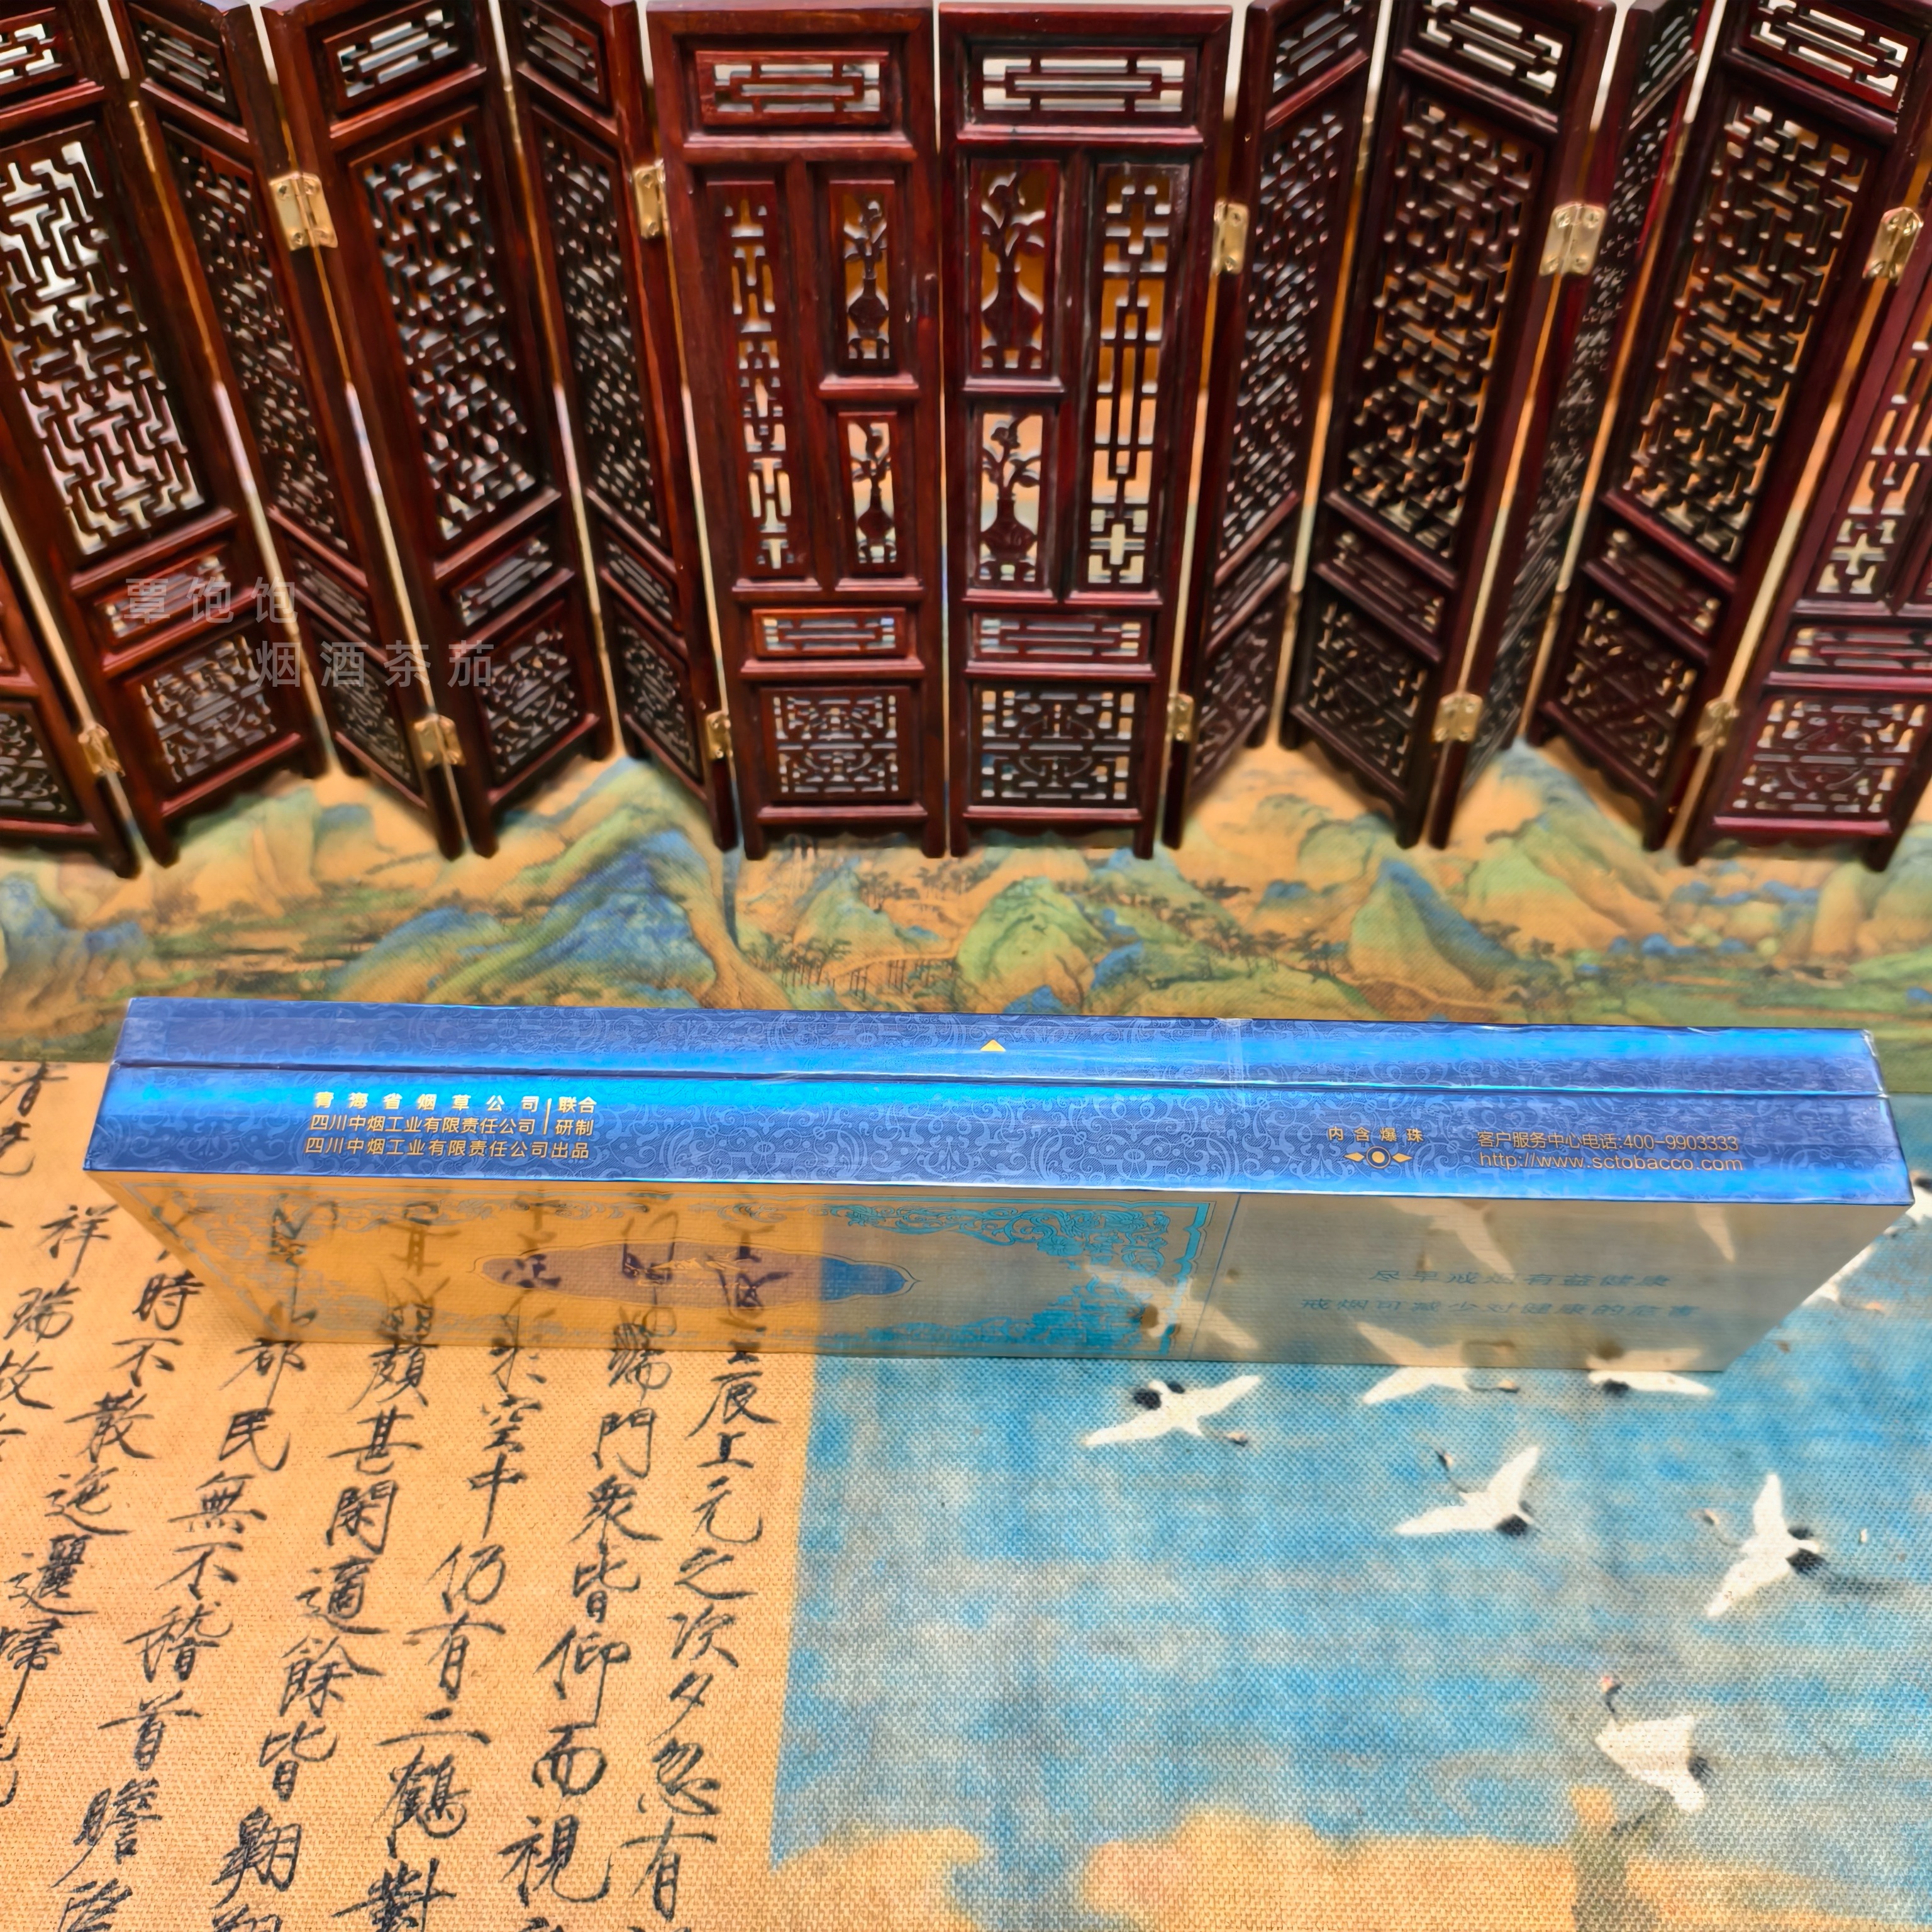 覃饱饱
烟酒茶茄
青海省烟草公司 联合
四川中烟工业有限责任公司 研制
四川中烟工业有限责任公司出品
内含爆珠
客户服务中心电话:400-9903333
http://www.sctobacco.com
尽早戒烟有益健康
戒烟可减少对健康的危害
辰上元之次夕忽有
端門衆皆仰而視
空中仍有二鶴對
頗甚閑適餘皆翱
都民無不稽首瞻
時不散迤邐歸
祥瑞故